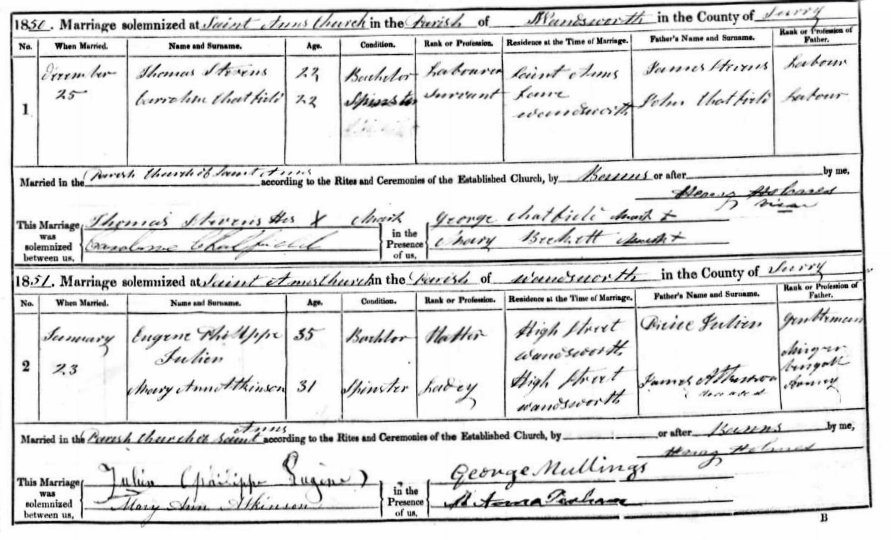 1850. Marriage solemnized at Saint Anns Church in the Parish of Wandsworth in the County of Surry
No. When Married. Name and Surname. Age. Condition. Rank or Profession. Residence at the Time of Marriage. Father's Name and Surname. Rank or Profession of Father.
1 December 25 Thomas Stevens 22 Bachelor Labourer Saint Anns James Stevens Labour
Caroline Chatfield 22 Spinster Servant wandsworth John Chatfield Labour
Married in the Parish Church of Saint Anns according to the Rites and Ceremonies of the Established Church, by Banns or after by me,
Henry Holmes
This Marriage was solemnized between us, Thomas Stevens His X Mark in the Presence of us, George Chatfield Mark +
Caroline Chatfield Mary Beckett Mark +
1851. Marriage solemnized at Saint Anns Church in the Parish of wandsworth in the County of Surry
No. When Married. Name and Surname. Age. Condition. Rank or Profession. Residence at the Time of Marriage. Father's Name and Surname. Rank or Profession of Father.
2 January 23 Eugene Philippe Julien 35 Bachlor Hatter High Street wandsworth Julien Gentleman
Mary Ann Atkinson 31 Spinster Ladey High Street wandsworth James Atkinson deceased Bengall Armey
Married in the Parish Church of Saint Anns according to the Rites and Ceremonies of the Established Church, by or after Banns by me,
Henry Holmes
This Marriage was solemnized between us, Julien (Philippe Eugène) in the Presence of us, George Mullings
Mary Ann Atkinson
B